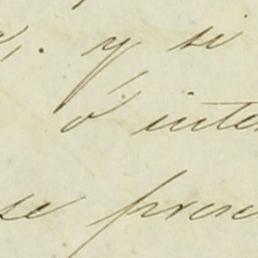 y si
ó inte
se prese